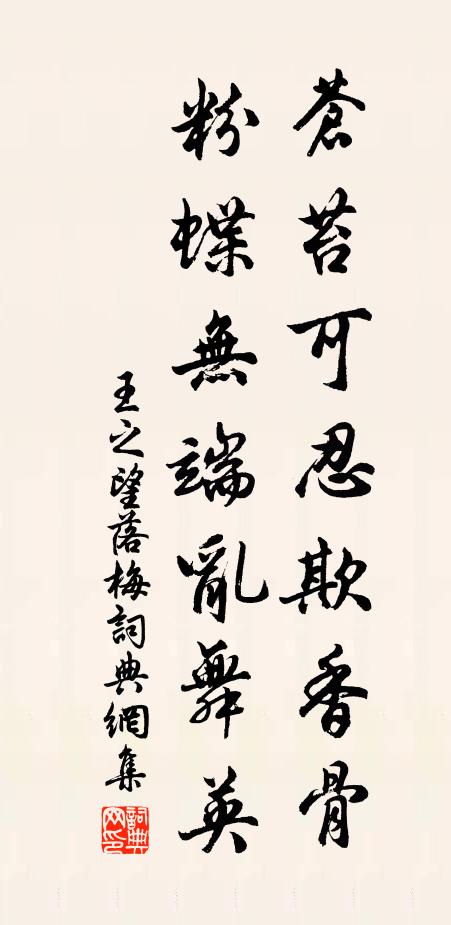 蒼苔可忍欺香骨
粉蝶無端亂舞英
王之望落梅詞典網集
詞典網印